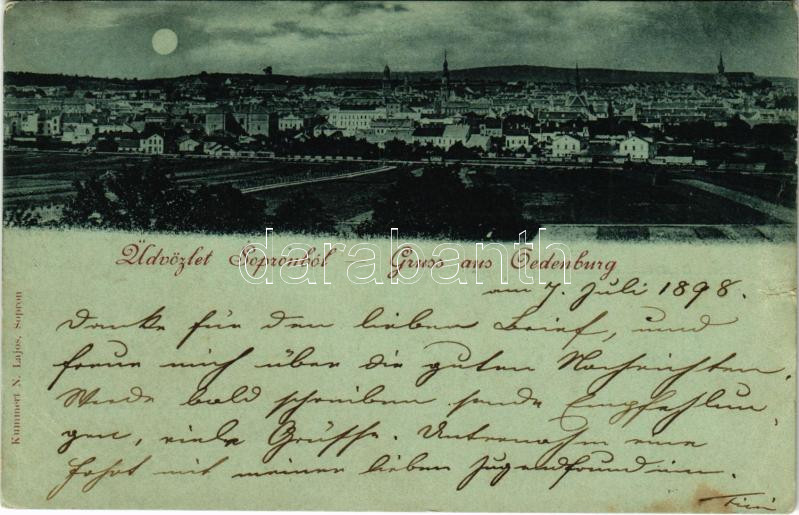 Üdvözlet Sopronból Gruss aus Oedenburg
darabanth.com
am 7. Juli 1898.
Danke für den lieben Brief, und
freue mich über die guten Nachrichten.
Werde bald schreiben sende Empfehlun
gen, viele Grüsse. Unternahm eine
Fahrt mit meiner lieben Jugendfreundin.
Kummert N. Lajos, Sopron